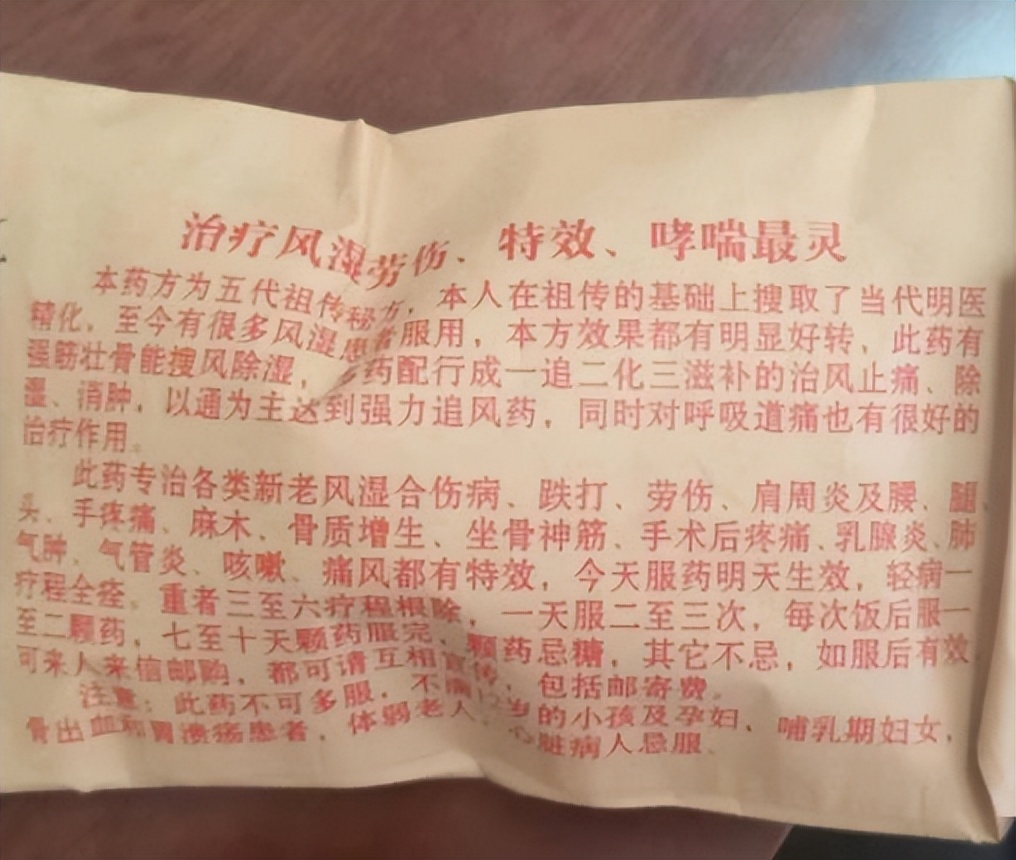 治疗风湿劳伤、特效、哮喘最灵
本药方为五代祖传秘方，本人在祖传的基础上搜取了当代明医
精化，至今有很多风湿患者服用，本方效果都有明显好转，此药有
强筋壮骨能搜风除湿，药配行成一追二化三滋补的治风止痛、除
湿、消肿，以通为主达到强力追风药，同时对呼吸道痛也有很好的
治疗作用。
此药专治各类新老风湿合伤病、跌打、劳伤、肩周炎及腰、腿、
头、手疼痛、麻木、骨质增生、坐骨神筋、手术后疼痛、乳腺炎、肺
气肿、气管炎、咳嗽、痛风都有特效，今天服药明天生效，轻病一
疗程全痊。重者三至六疗程根除，一天服二至三次，每次饭后服一
至二颗药，七至十天颗药服完，颗药忌糖，其它不忌，如服后有效，
可来人来信邮购，都可请互相宣传，包括邮寄费。
注意：此药不可多服，不满12岁的小孩及孕妇、哺乳期妇女，
骨出血和胃溃疡患者，体弱老人，心脏病人忌服。